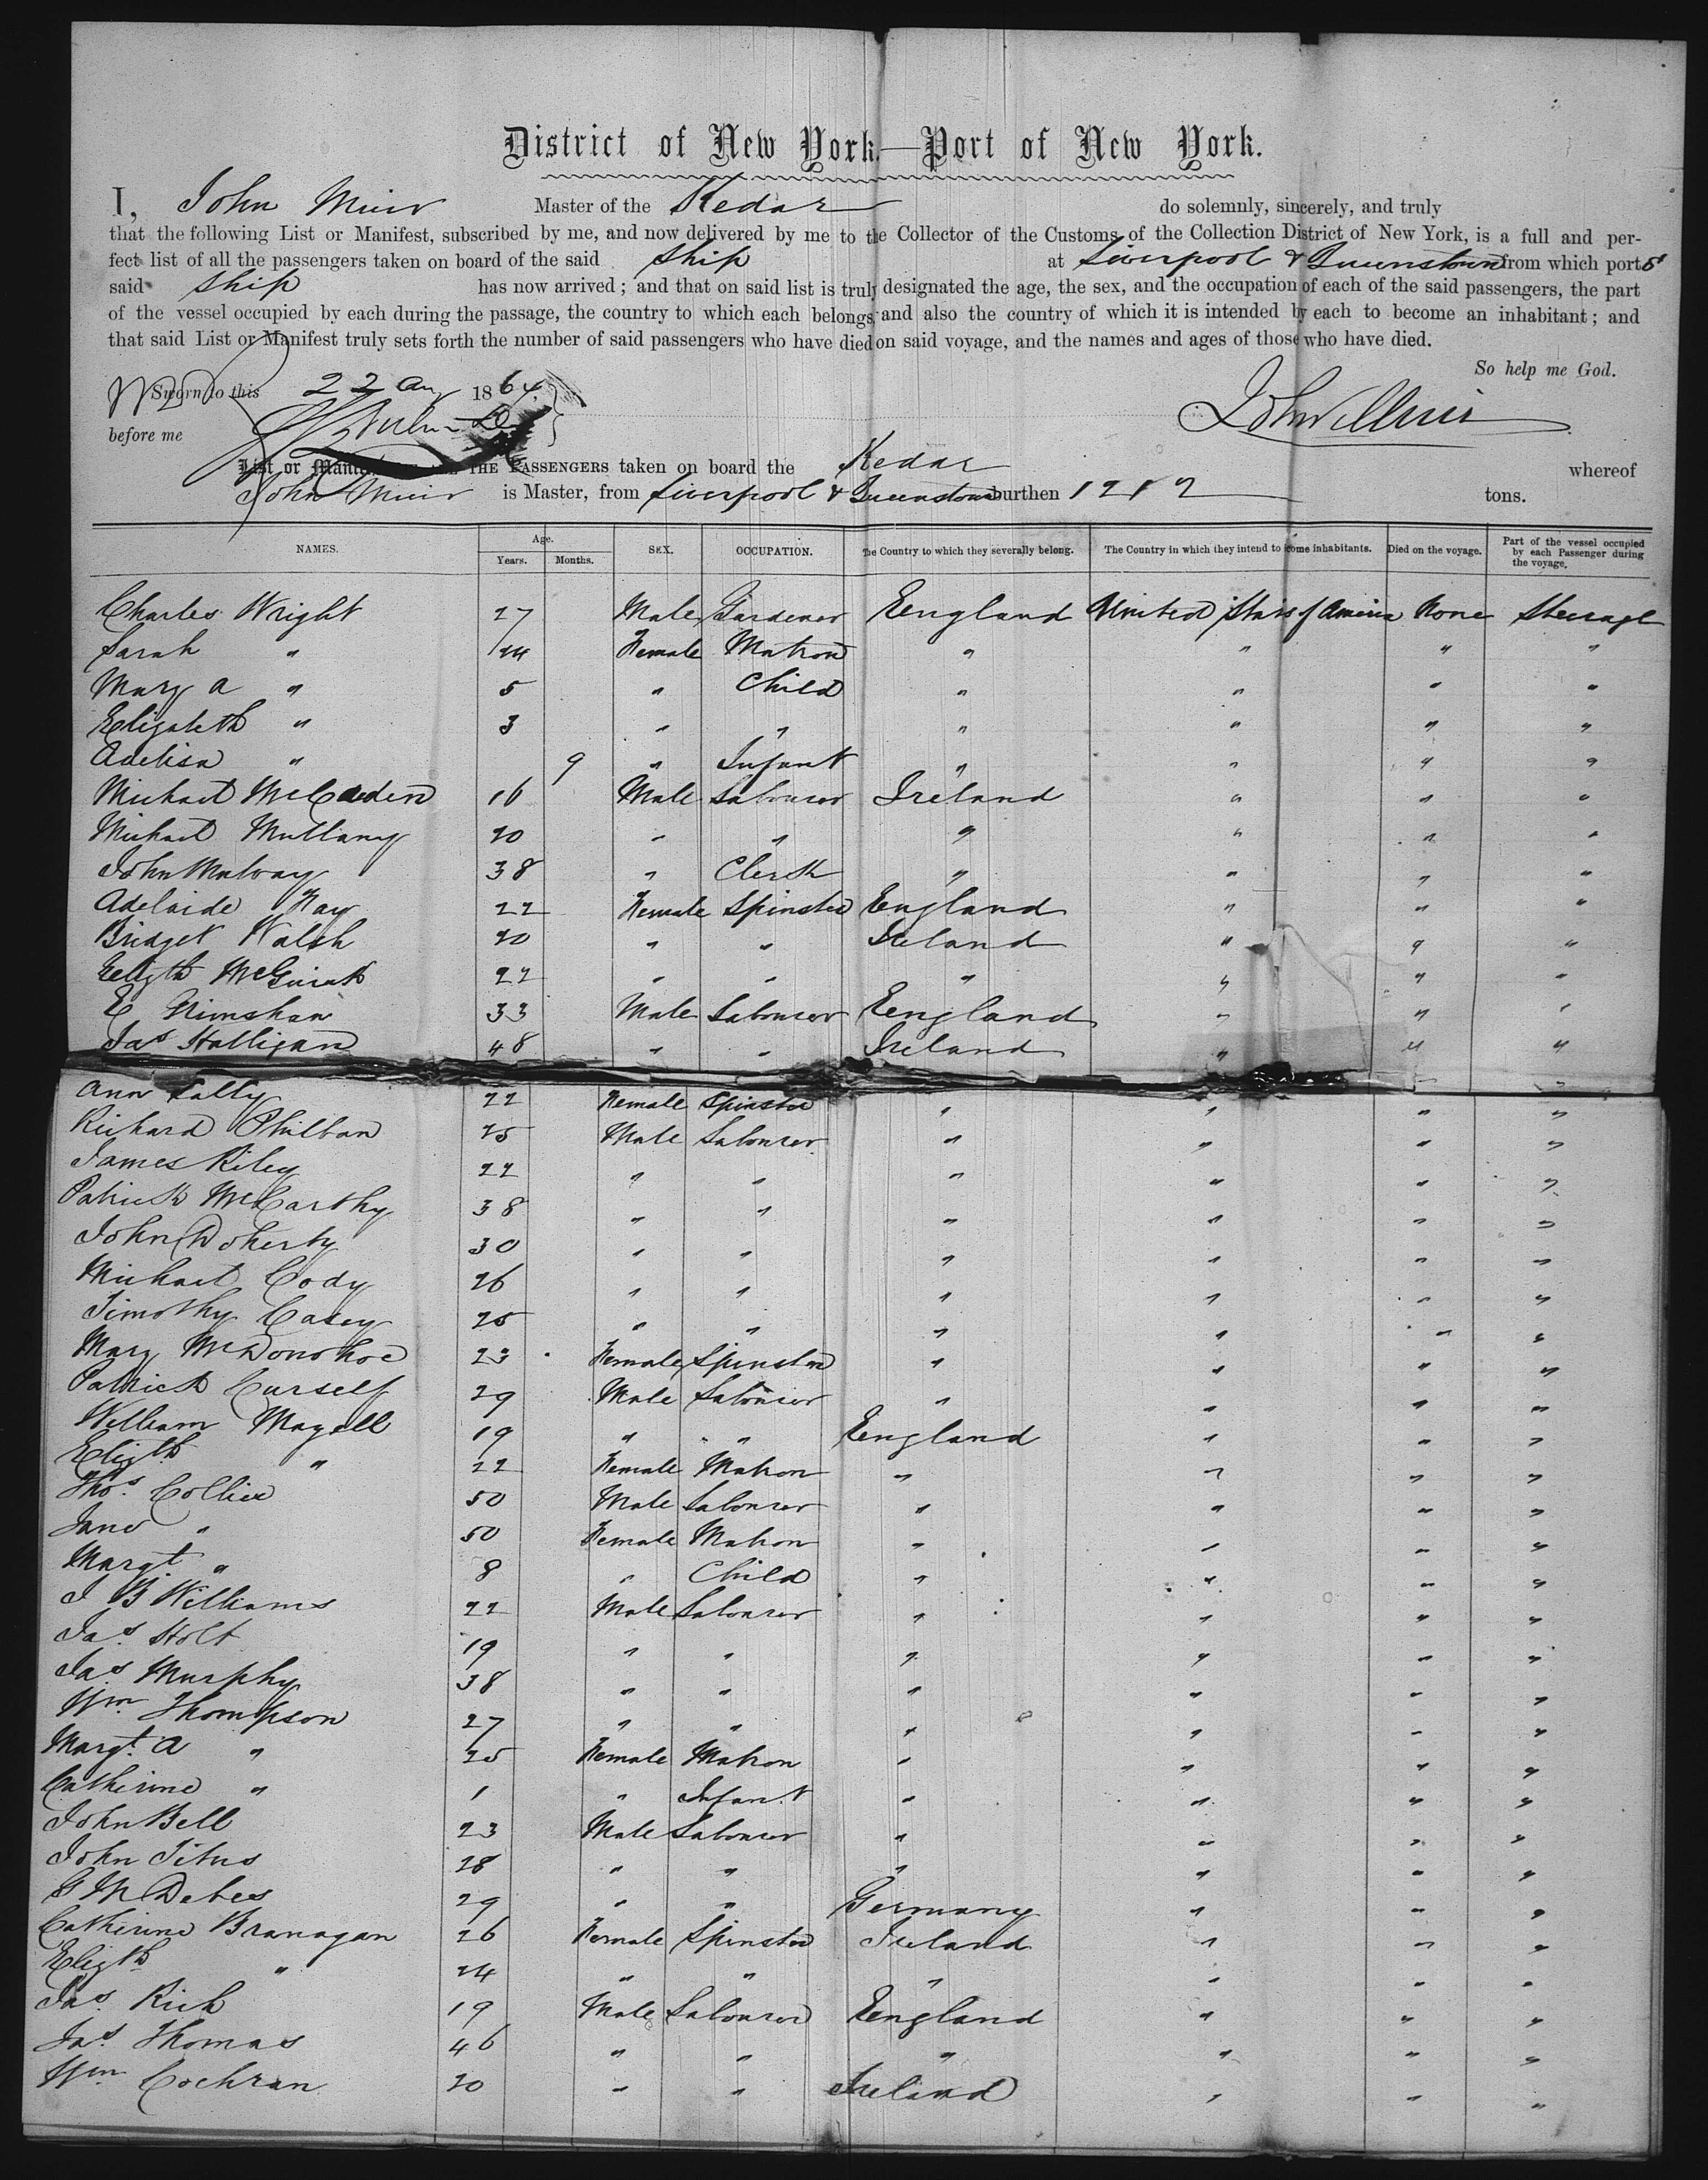 District of New York.—Port of New York.
I, John Muir Master of the Kedar do solemnly, sincerely, and truly
that the following List or Manifest, subscribed by me, and now delivered by me to the Collector of the Customs of the Collection District of New York, is a full and per-
fect list of all the passengers taken on board of the said Ship at Liverpool & Queenstown from which ports
said Ship has now arrived; and that on said list is truly designated the age, the sex, and the occupation of each of the said passengers, the part
of the vessel occupied by each during the passage, the country to which each belongs, and also the country of which it is intended by each to become an inhabitant; and
that said List or Manifest truly sets forth the number of said passengers who have died on said voyage, and the names and ages of those who have died.
So help me God.
Sworn to this 22 Aug 1864
John Muir
before me
List or Manifest THE PASSENGERS taken on board the Kedar whereof
John Muir is Master, from Liverpool & Queenstown burthen 1212 tons.
NAMES. Age. Years. Months. SEX. OCCUPATION. The Country to which they severally belong. The Country in which they intend to come inhabitants. Died on the voyage. Part of the vessel occupied by each Passenger during the voyage.
Charles Wright 27 Male Gardener England United States of America None Steerage
Sarah " 24 Female Matron " " " "
Mary A " 5 " Child " " " "
Elizabeth " 3 " " " " " "
Adelisa " 9 " Infant " " " "
Michael McCadden 16 Male Labourer Ireland " " "
Michael Mullany 20 " " " " " "
John Mulvay 38 " Clerk " " " "
Adelaide Kay 22 Female Spinster England " " "
Bridget Walsh 20 " " Ireland " " "
Elizth McGuirk 22 " " " " " "
E Nimshaw 33 Male Labourer England " " "
Jas Halligan 48 " " Ireland " " "
Ann Lally 22 Female Spinster " " " "
Richard Philban 25 Male Labourer " " " "
James Riley 22 " " " " " "
Patrick McCarthy 38 " " " " " "
John Doherty 30 " " " " " "
Michael Cody 26 " " " " " "
Timothy Casey 25 " " " " " "
Mary McDonohoe 23 Female Spinster " " " "
Patrick Curself 29 Male Labourer " " " "
William Magell 19 " " England " " "
Elizth " 22 Female Matron " " " "
Thos. Collier 50 Male Labourer " " " "
Jane " 50 Female Matron " " " "
Margt. " 8 " Child " " " "
J B Williams 22 Male Labourer " " " "
Jas. Holt 19 " " " " " "
Jas Murphy 38 " " " " " "
Wm. Thompson 27 " " " " " "
Margt. A " 25 Female Matron " " " "
Catherine " 1 " Infant " " " "
John Bell 23 Male Labourer " " " "
John Titus 28 " " " " " "
G M Debes 29 " " Germany " " "
Catherine Branagan 26 Female Spinster Ireland " " "
Elizth " 24 " " " " " "
Jas. Rich 19 Male Labourer England " " "
Jas. Thomas 46 " " " " " "
Wm Cochran 20 " " Ireland " " "